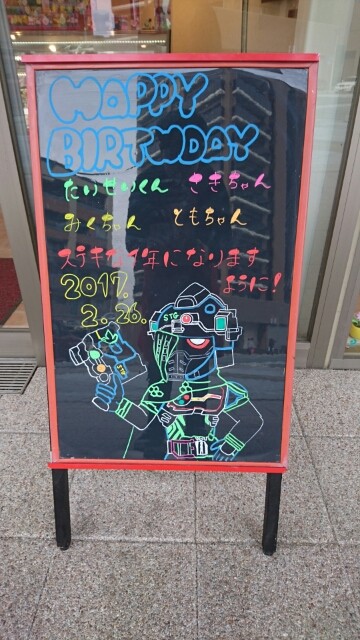 HAPPY
BIRTHDAY
たいせいくん さきちゃん
みくちゃん ともちゃん
ステキな1年になります
ように!
2017.
2.26.
STG